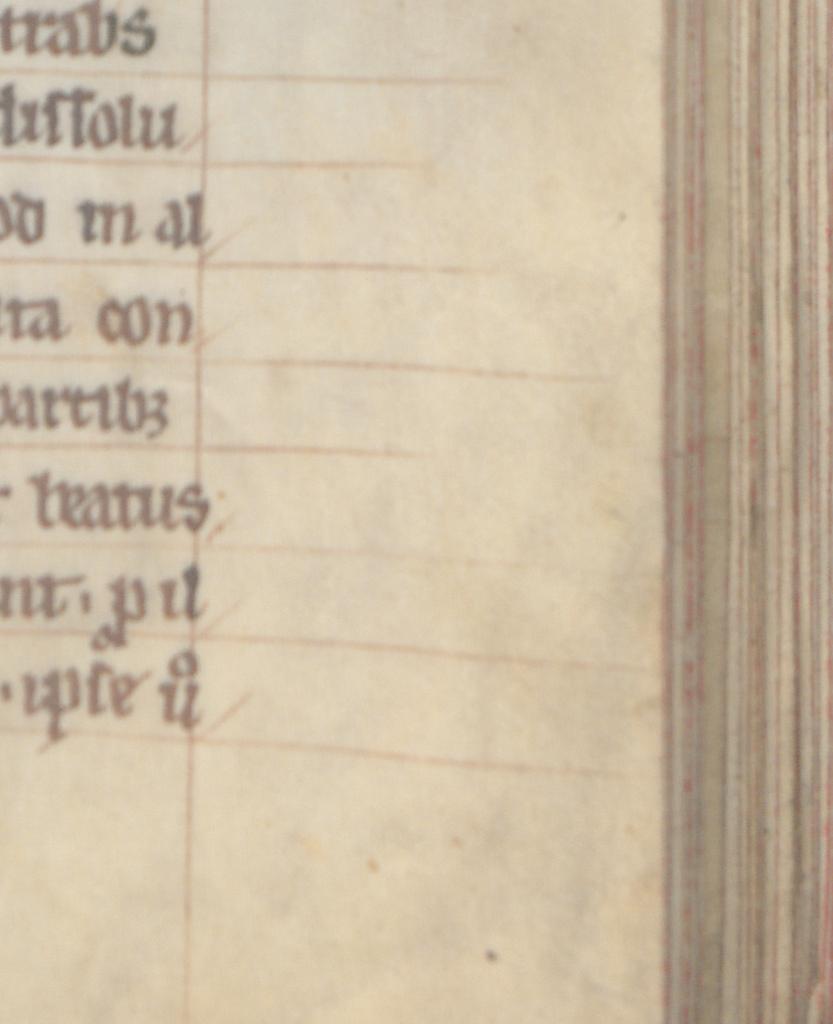 trabs
dissolu
od in al
ita con
partibꝫ
beatus
nt· p il
·ipse uͦ